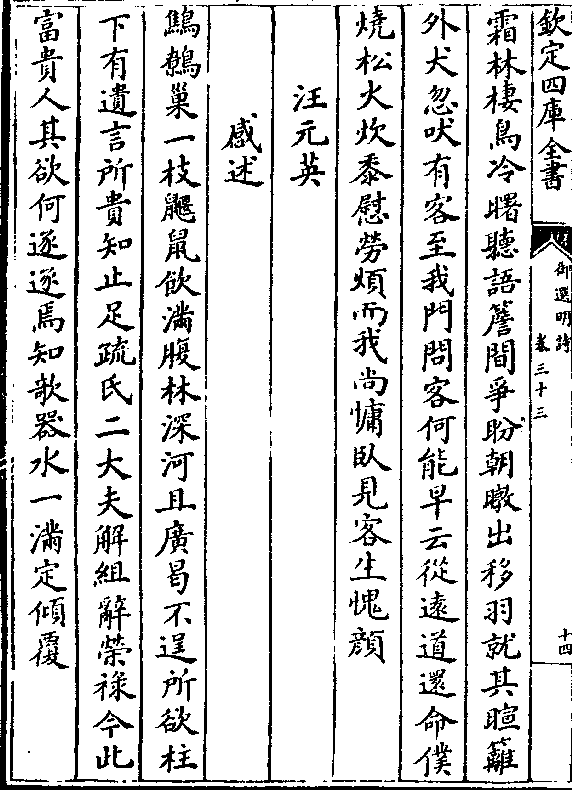 欽定四庫全書
御選明詩
卷三十三
十四
霜林棲鳥冷曙聽語簷間爭盼朝暾出移羽就其暄籬
外犬忽吠有客至我門問客何能早云從遠道還命僕
燒松火炊黍慰勞煩而我尚慵臥見客生愧顔
汪元英
感述
鷦鷯巢一枝鼴鼠飲滿腹林深河且廣曷不逞所欲柱
下有遺言所貴知止足疏氏二大夫解組辭榮祿今此
富貴人其欲何逐逐焉知欹器水一滿定傾覆